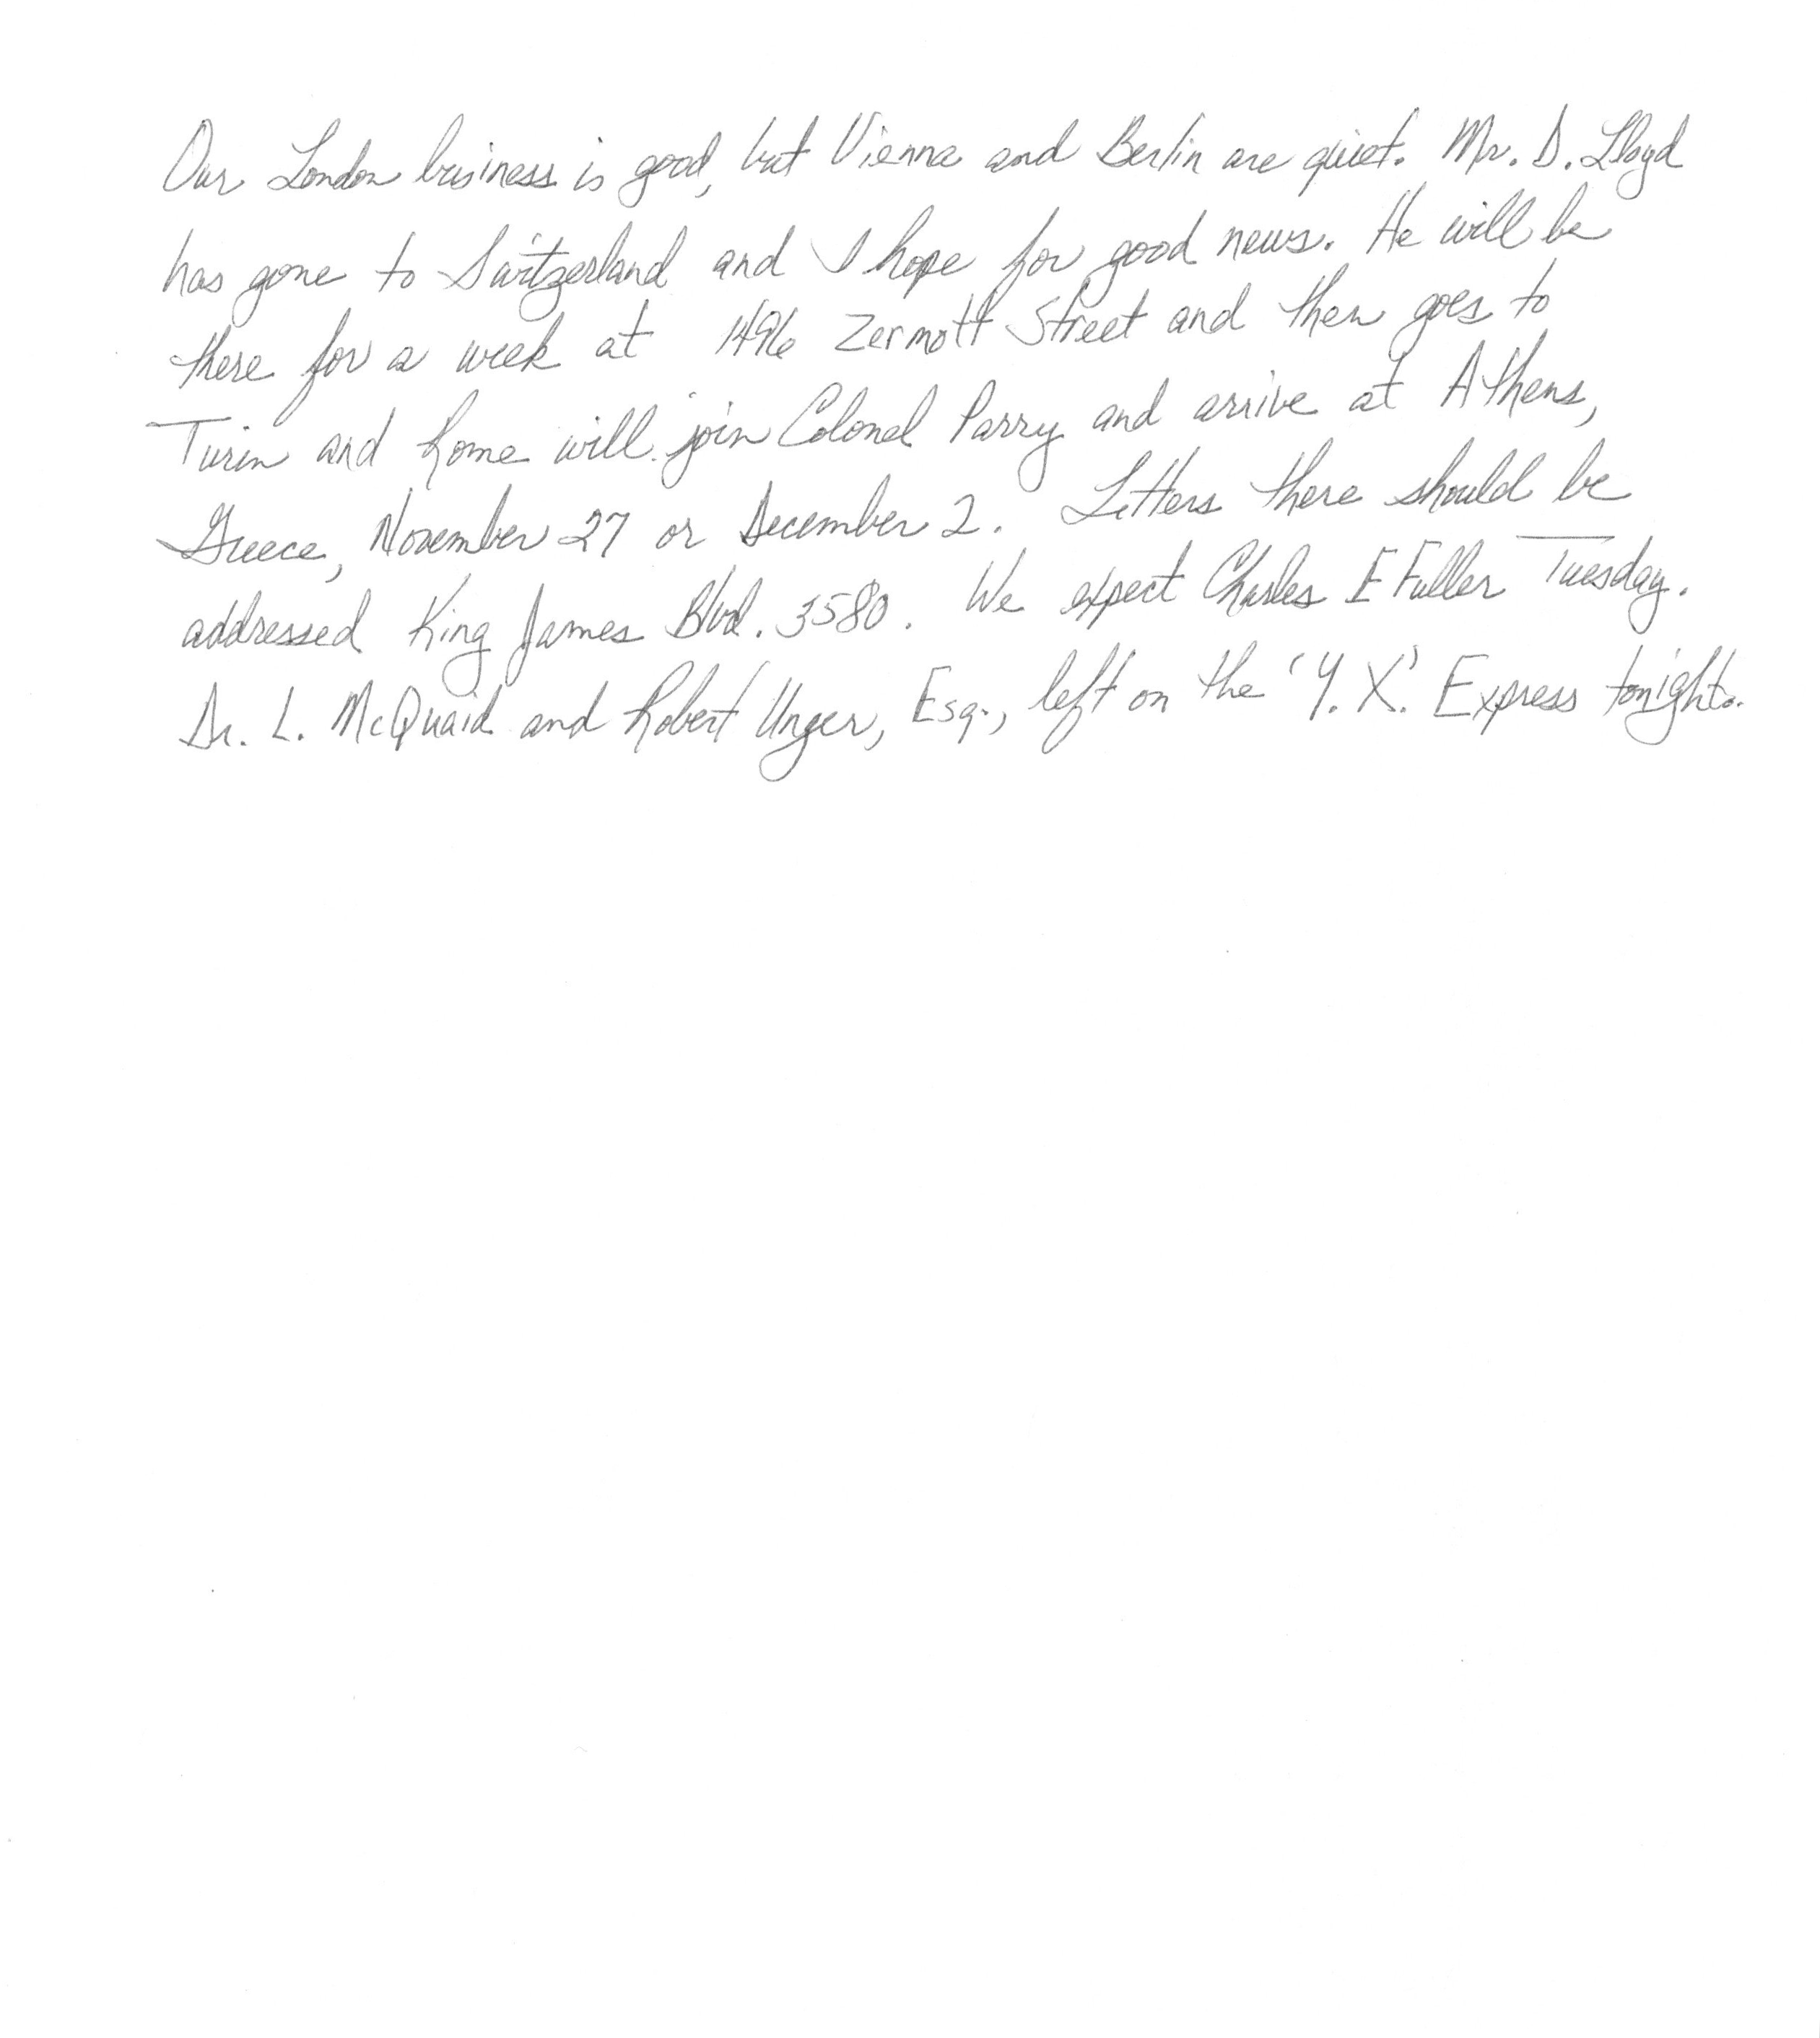 Our London business is good, but Vienna and Berlin are quiet. Mr. D. Lloyd
has gone to Switzerland and I hope for good news. He will be
there for a week at 1496 Zermott Street and then goes to
Turin and Rome will join Colonel Parry and arrive at Athens,
Greece, November 27 or December 2. Letters there should be
addressed King James Blvd. 3580. We expect Charles E Fuller Tuesday.
Dr. L. McQuaid and Robert Unger, Esq., left on the 'Y. X.' Express tonight.